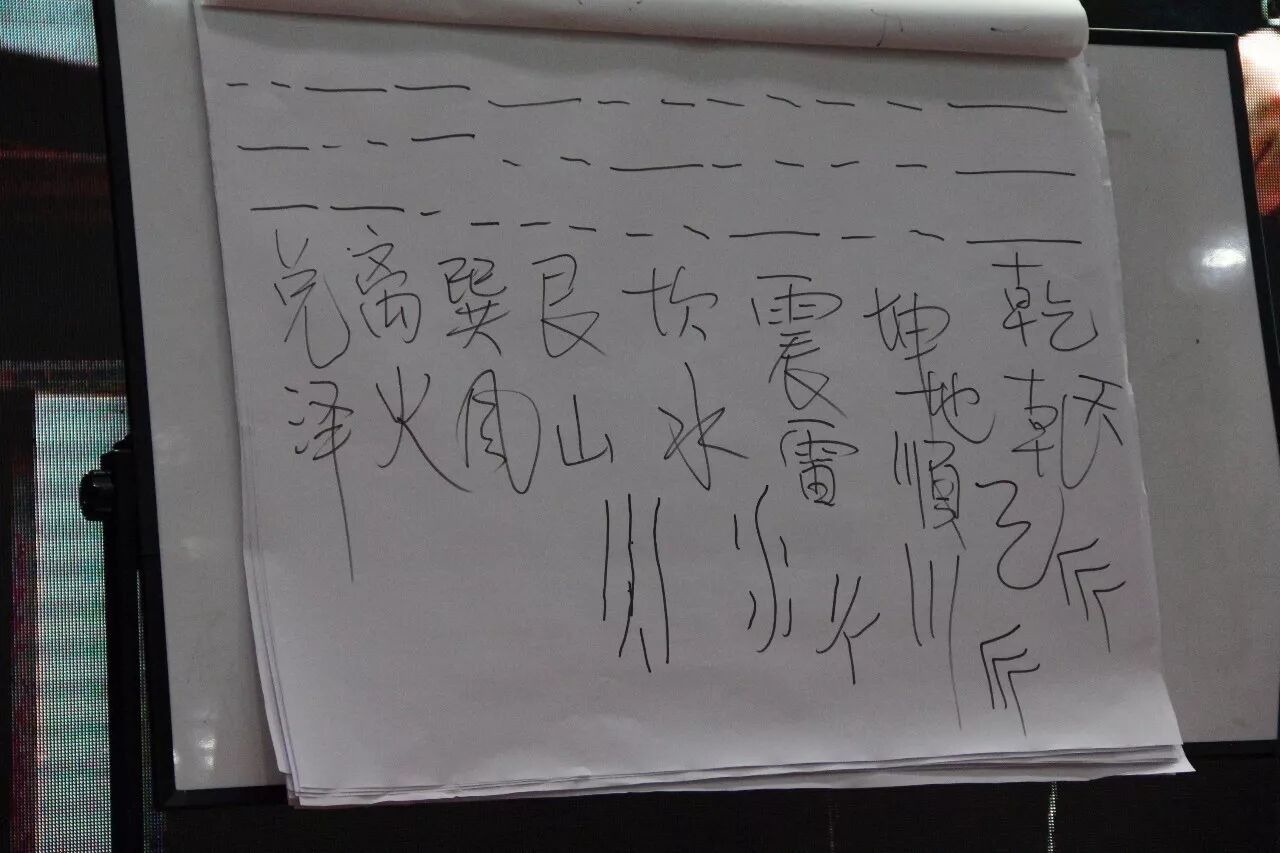 兑离巽艮坎震坤乾
泽火風山水雷地𠦝天
順乙
川